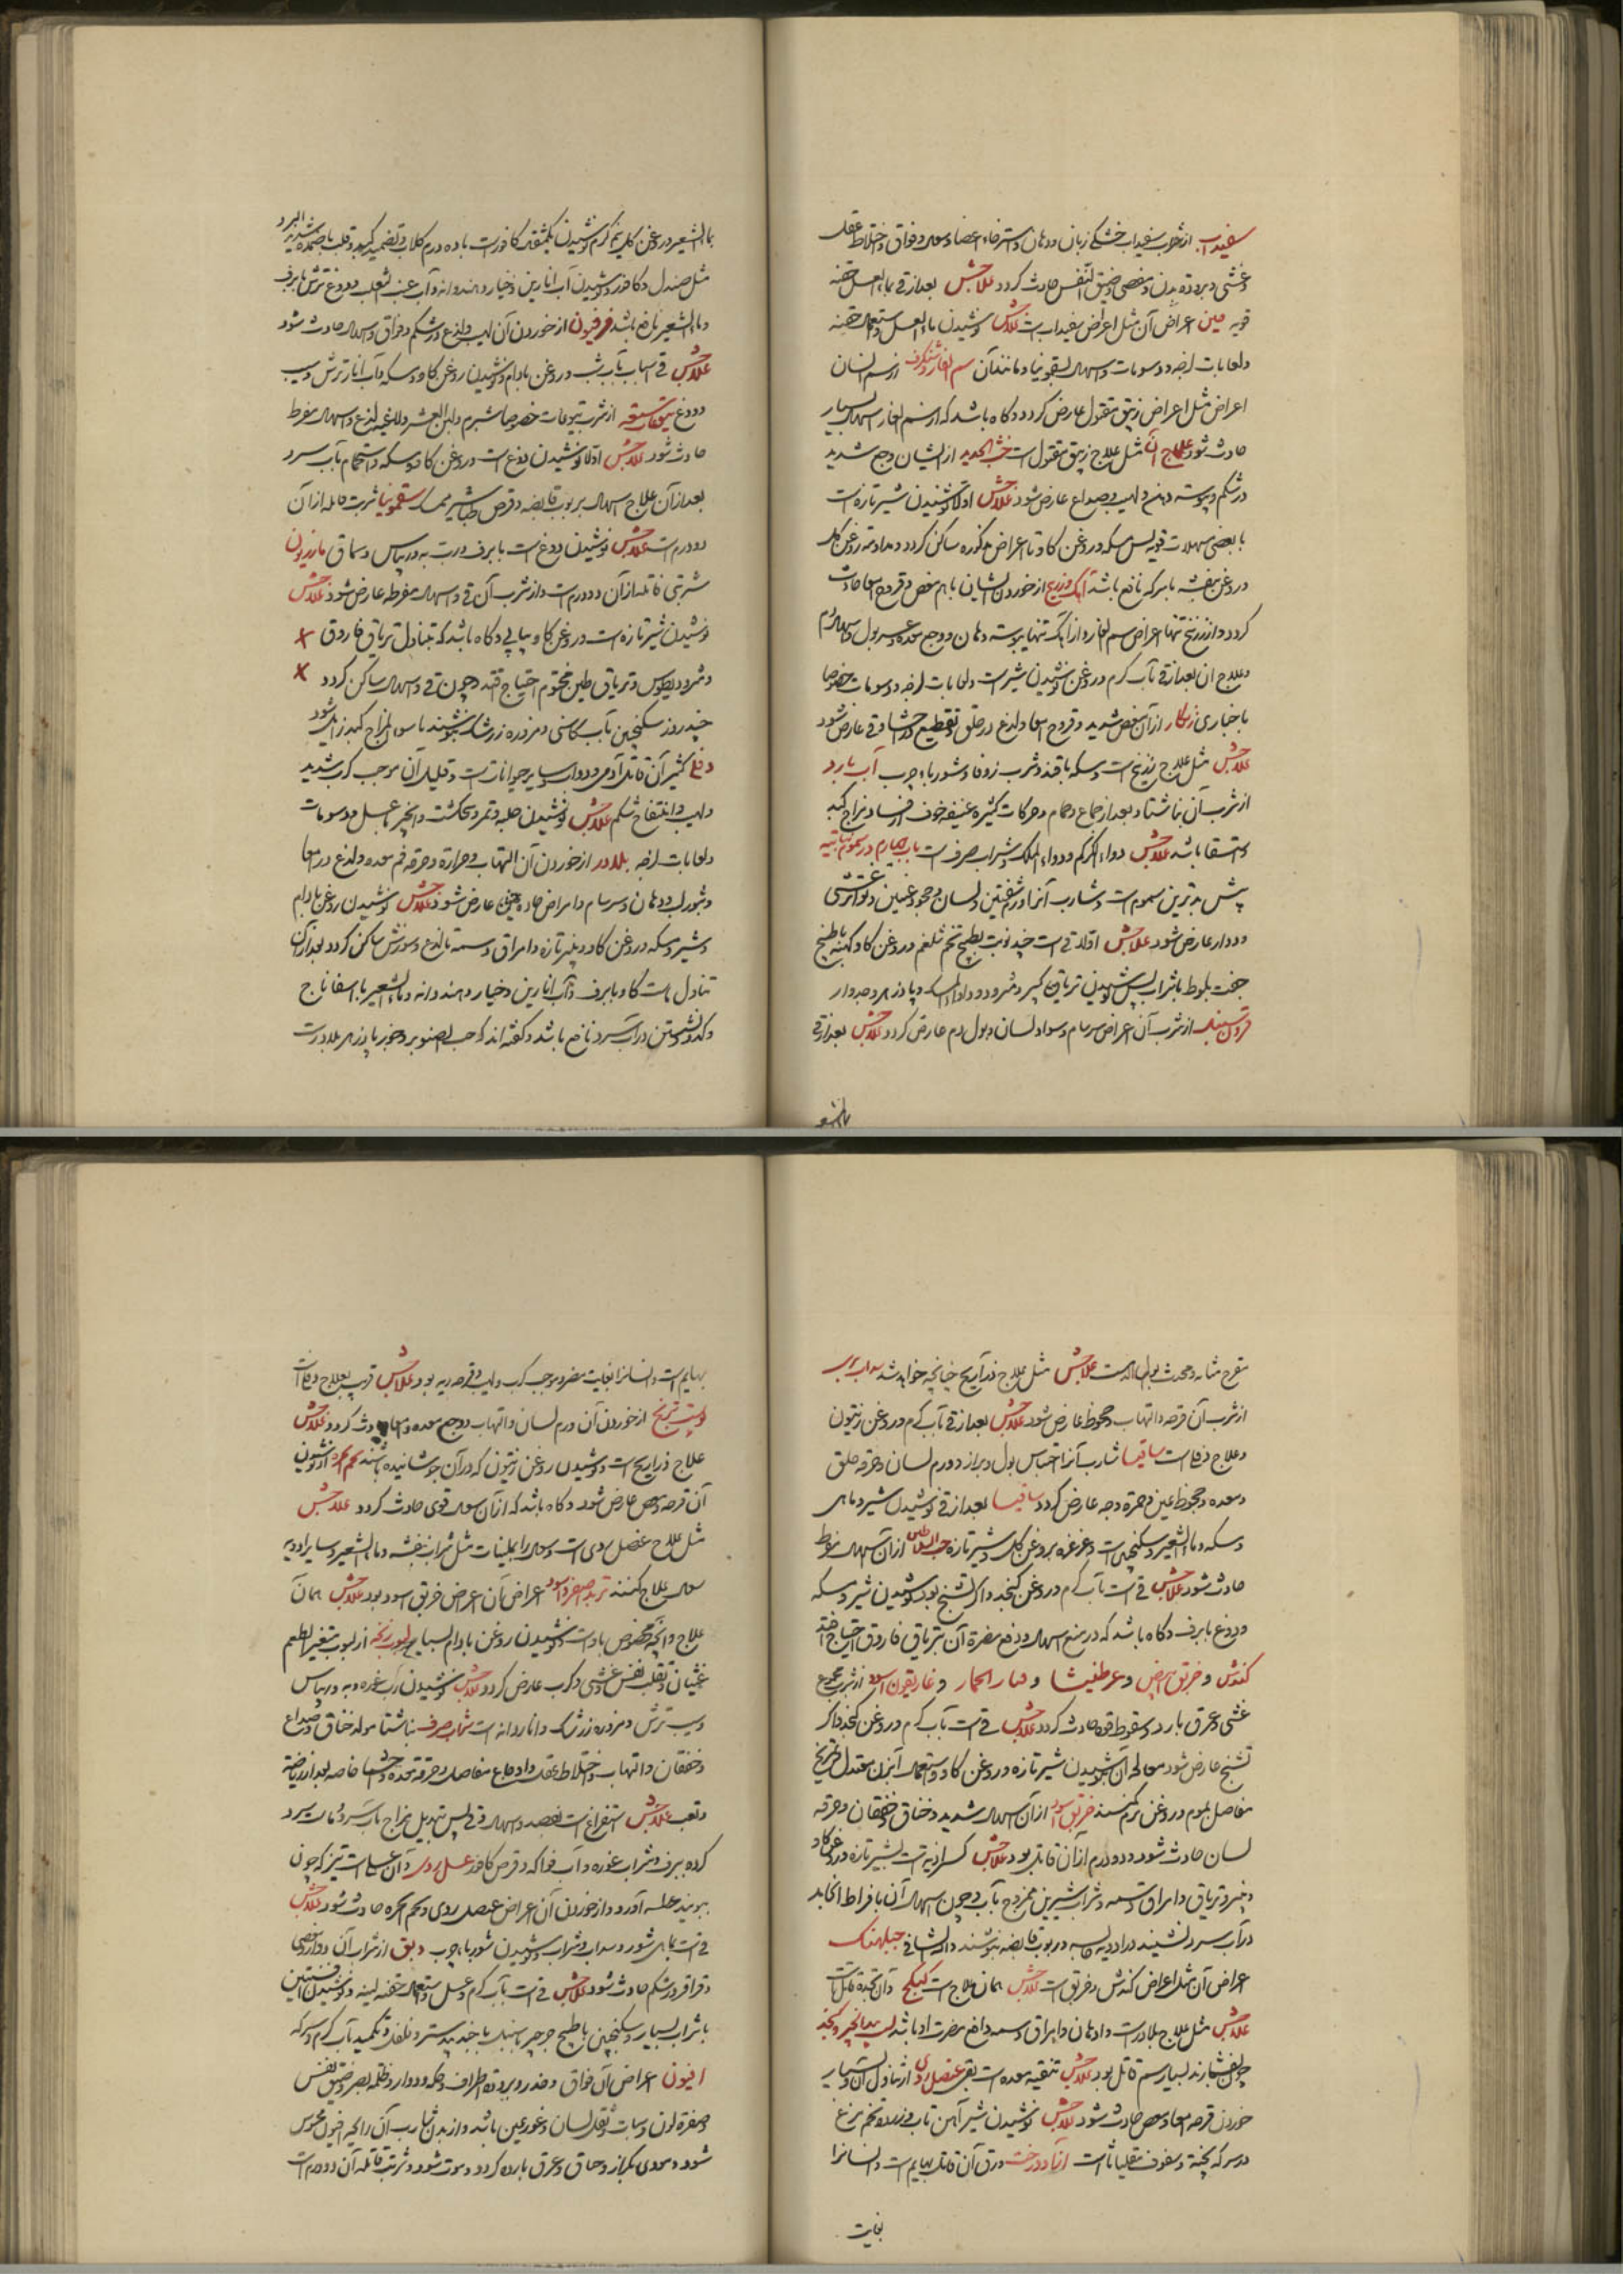 سفیداب از شرب سفیداب خشکی زبان و دهان و استرخاء اعضا و سعال و فواق و اختلاط عقل
و غشی و برودة بدن و مغص و ضیق النفس حادث گردد علاجش بعد از قی بماء العسل حقنه
قویه اعراض آن مثل اعراض سفیداب است علاجش نوشیدن ماء العسل و استعمال حقنه
و لعابات لزجه و دسومات و اسهال بسقمونیا و مانند آن سم الفار و شنگرف از سم ایشان
اعراض مثل اعراض زیبق مقتول عارض گردد و گاه باشد که از سم الفار اسهال بسیار
حادث شود علاج آن مثل علاج زیبق مقتول است خبث الحدید از ایشان وجع شدید
در شکم و یبوسه دهن و لهیب و صداع عارض شود علاجش اولا نوشیدن شیر تازه است
با بعضی مسهلات قویه پس مسکه و روغن گاو تا اعراض مذکوره ساکن گردد و مداومة روغن گل
و روغن بنفشه با سرکه نافع باشد آهک و زرنیخ از خوردن ایشان باهم مغص و قروح امعا حادث
گردد و از زرنیخ تنها اعراض سم الفار و از آهک تنها یبوسه دهان و وجع معده و عسر بول و اسهال دم
و علاج آن بعد از قی بآب گرم و روغن نوشیدن شیر است و لعابات لزجه و دسومات خصوصا
با خبازی زنگار از آن مغص شدید و قروح امعا و لذع در حلق و تقطیع در احشا و قی عارض شود
علاجش مثل علاج زرنیخ است و مسکه با قند و شرب زوفا و شورباء چرب آب بارد
از شرب آن ناشتا و بعد از جماع و حمام و حرکات کثیره عنیفه خوف از فساد مزاج کبد
و استسقا باشد علاجش دواء الکرکم و دواء الملک و شراب صرف است باب چهارم در سموم نباتیه
بیش بدترین سموم است و شارب آنرا ورم شفتین و لسان و جحوظ عینین و تواتر غشی
و دوار عارض شود علاجش اولا قی است چند نوبت بطبیخ تخم شلغم و روغن گاو کهنه یا طبیخ
جفت بلوط با شراب پس نوشیدن تریاق کبیر و مثرودیطوس و دواء المسک و پادزهر و جدوار
قرون سنبل از شرب آن اعراض سرسام و سواد لسان و بول دم عارض گردد علاجش بعد از قی
بماء الشعیر
بماء الشعیر و روغن گل نیم گرم نوشیدن یکمثقال کافور است با ده درم گلاب و تضمید کبد و قلب باضمده شدید البرد
مثل صندل و کافور و نوشیدن آب انارین و خیار و هندوانه و آب عنب الثعلب و دوغ ترش با برف
و ماء الشعیر نافع باشد فرفیون از خوردن آن لهیب و لذع در شکم و فواق و اسهال حادث شود
علاجش قی است باب شبت و روغن بادام و نوشیدن روغن گاو و مسکه و آب انار ترش و سیب
و دوغ یتوعات از شرب یتوعات خصوصا شبرم و لبن العشر و لاغیه لذع و اسهال مفرط
حادث شود علاجش اولا نوشیدن دوغ است و روغن گاو و مسکه و استحمام بآب سرد
بعد از آن علاج اسهال بربوب قابضه و قرص طباشیر ممسک سقمونیا شربت قاتله از آن
دو درم است علاجش نوشیدن دوغ است با برف و رب به و ریباس و سماق مازریون
شربتی قاتله از آن دو درم است و از شرب آن قی و اسهال مفرطه عارض شود علاجش
نوشیدن شیر تازه است و روغن گاو پیاپی و گاه باشد که بتناول تریاق فاروق
و مثرودیطوس و تریاق طین مختوم احتیاج افتد و چون قی و اسهال ساکن گردد
چند روز سکنجبین بآب کاسنی و مزوره زرشک بنوشند تا سوء المزاج کبد زایل شود
دفلی کثیر آن قاتل آدمی و دواب و سایر حیوانات است و قلیل آن موجب کرب شدید
و لهیب و انتفاخ شکم علاجش نوشیدن حلبه و تمر و پنجنگشت و انجیر با عسل و دسومات
و لعابات لزجه بلادر از خوردن آن التهاب و حرارة و حرقه فم معده و لذع در امعا
و بثور لب و دهان و سرسام و امراض حاده عارض شود علاجش نوشیدن روغن بادام
و شیر و مسکه و روغن گاو و پنیر تازه و امراق دسمه تا لذع و سوزش ساکن گردد بعد از آن
تناول ماست گاو با برف و آب انارین و خیار و هندوانه و ماء الشعیر با اسفاناج
و کدو و نشستن در آب سرد نافع باشد و گفته اند که حب الصنوبر و جوز پادزهر بلادر است
مقرح مثانه و محدث بول الدم است علاجش مثل علاج ذراریح چنانچه خواهد شد سداب بری
از شرب آن قرحه و التهاب و جحوظ عارض شود علاجش بعد از قی بآب گرم و روغن زیتون
و علاج دفلی است ثافسیا شارب آنرا احتباس بول و براز و ورم لسان و حرقه حلق
و معده و جحوظ عین و حمرة وجه عارض گردد علاجش بعد از قی نوشیدن شیر و ماهی
و مسکه و ماء الشعیر و سکنجبین است و غرغره بروغن گل و شیر تازه حب السلاطین از آن اسهال مفرط
حادث شود علاجش قی است بآب گرم و روغن کنجد و اگر تشنج بود نوشیدن شیر و مسکه
و دوغ با برف و گاه باشد که در منع اسهال و دفع مضرة آن بتریاق فاروق احتیاج افتد
کندش و خربق ابیض و عرطنیثا و قثاء الحمار و غاریقون اسود از شرب مجموع
غشی و عرق بارد و سقوط قوه حادث گردد علاجش قی است بآب گرم و روغن کنجد و اگر
تشنج عارض شود معالجه آن بنوشیدن شیر تازه و روغن گاو و استعمال آبزن معتدل و تمریخ
مفاصل بموم و روغن نرم کنند خربق اسود از آن اسهال شدید و خناق و خفقان و حرقه
لسان حادث شود و دو درم از آن قاتل بود علاجش کسر اذیت است بشیر تازه و روغن گاو
و پنیر و تریاق و امراق دسمه و شراب شیرین ممزوج بآب و چون اسهال آن بافراط انجامد
در آب سرد نشینند و ادویه حابسه و ربوب قابضه بنوشند و الله الشافی جبلهنک
اعراض آن مثل اعراض کندش و خربق است علاجش همان علاج است کبیکج و آن بغیة قتال است
علاجش مثل علاج بلادر است و ادهان و امراق دسمه دافع مضرت او باشد لب بیدانجیر و کنجد
چون بفشارند بسیار سم قاتل بود علاجش تنقیه معده است بقی عنصل ردی از تناول آن و بسیار
خوردن قرحه امعا و مغص حادث شود علاجش نوشیدن شیر آهن تاب و زرده تخم مرغ
در سرکه پخته و سفوف مقلیاثا است آزاد درخت ورق آن قاتل بهایم است و انسانرا
بغایت
بهایم است و انسانرا بغایت مضر و موجب کرب و لهیب و قرحه ریه بود علاجش قریب بعلاج دفلی است
پوست ترنج از خوردن آن ورم لسان و التهاب و وجع معده و امعا حادث گردد علاجش
علاج ذراریح است و نوشیدن روغن زیتون که در آن جوشانیده باشند تخم انجره از نوشیدن
آن قرحه و مغص عارض شود و گاه باشد که از آن سعال قوی حادث گردد علاجش
مثل علاج عنصل ردی است و سعال را بملینات مثل شراب بنفشه و ماء الشعیر و سایر ادویه
سعال علاج کنند تربد اصفر و اسود اعراض آن اعراض خربق اسود بود علاجش همان
علاج و آنچه مخصوص باوست نوشیدن روغن بادام بسیار لبوب زنخه از لبوب متغیر الطعم
غثیان و تقلب نفس و غشی و کرب عارض گردد علاجش نوشیدن رب غوره و به و ریباس
و سیب ترش و مزوره زرشک و اناردانه است شراب صرف ناشتا مولد خناق و صداع
و خفقان و التهاب و اختلاط عقل و اوجاع مفاصل و حرقة معده و احشا خاصه بعد از ریاضة
و تعب علاجش استفراغ است بفصد و اسهال و قی پس تبدیل مزاج بآب سرد و ماست سرد
کرده ببرف و شراب غوره و آب فواکه و قرص کافور عسل ردی و آن عسلی است تیز که چون
ببویند عطسه آورد و از خوردن آن اعراض عنصل ردی و تخم انجره حادث شود علاجش
قی است بماهی شور و سداب و شراب و نوشیدن شورباء چرب دبق از شراب آن دوار و مغص
و قراقر در شکم حادث شود علاجش قی است بآب گرم و عسل و استعمال حقنه لینه و نوشیدن افسنتین
با شراب بسیار و سکنجبین با طبیخ جرجیر یا سنبل با جندبیدستر و فلفل و تکمید بآب گرم و سرکه
افیون اعراض آن فواق و خدر و برودة اطراف و حکه و دوار و ظلمه بصر و ضیق نفس
و صفرة لون و سبات و ثقل لسان و غور عین باشد و از بدن شارب آن رایحه افیون محسوس
شود و مودی بکزاز و خناق و عرق بارد گردد و موت شود و شربت قاتله آن دو درم است